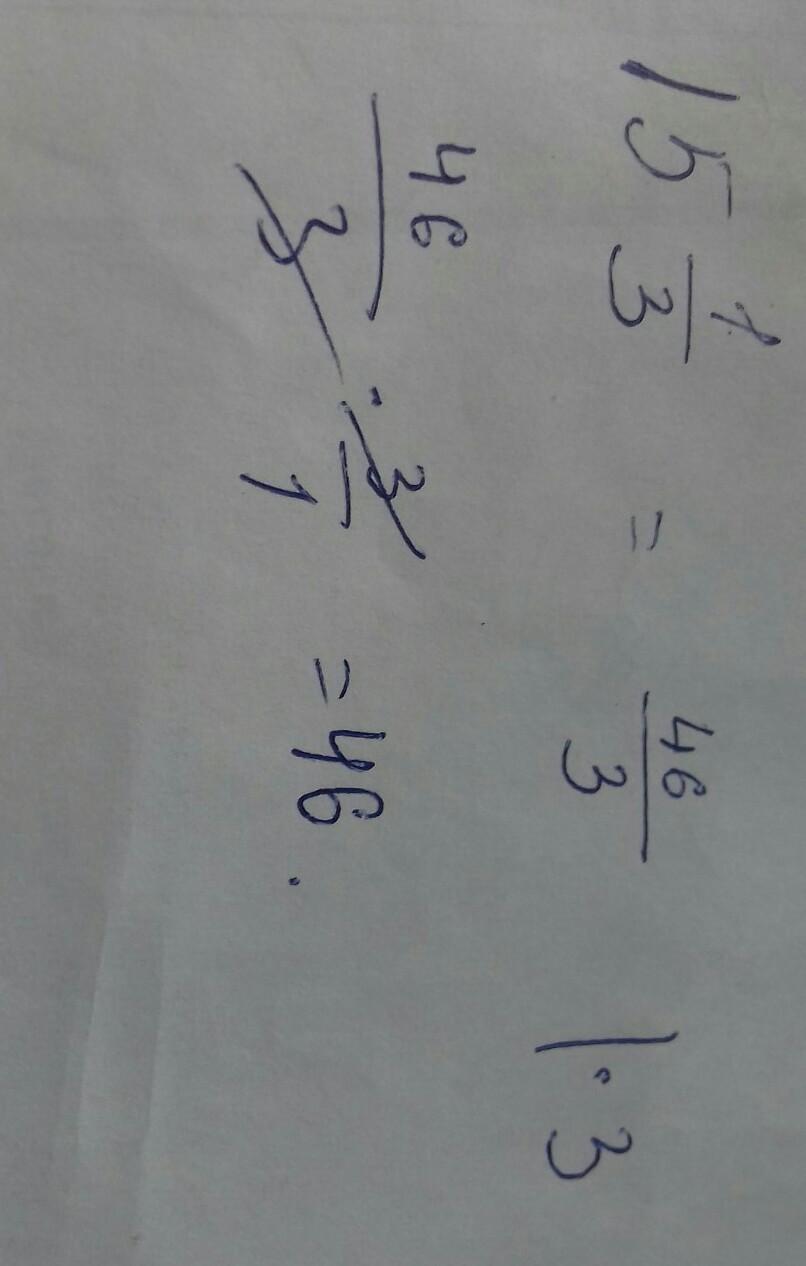 15 1/3 = 46/3 |·3
46/3 · 3/1 = 46.